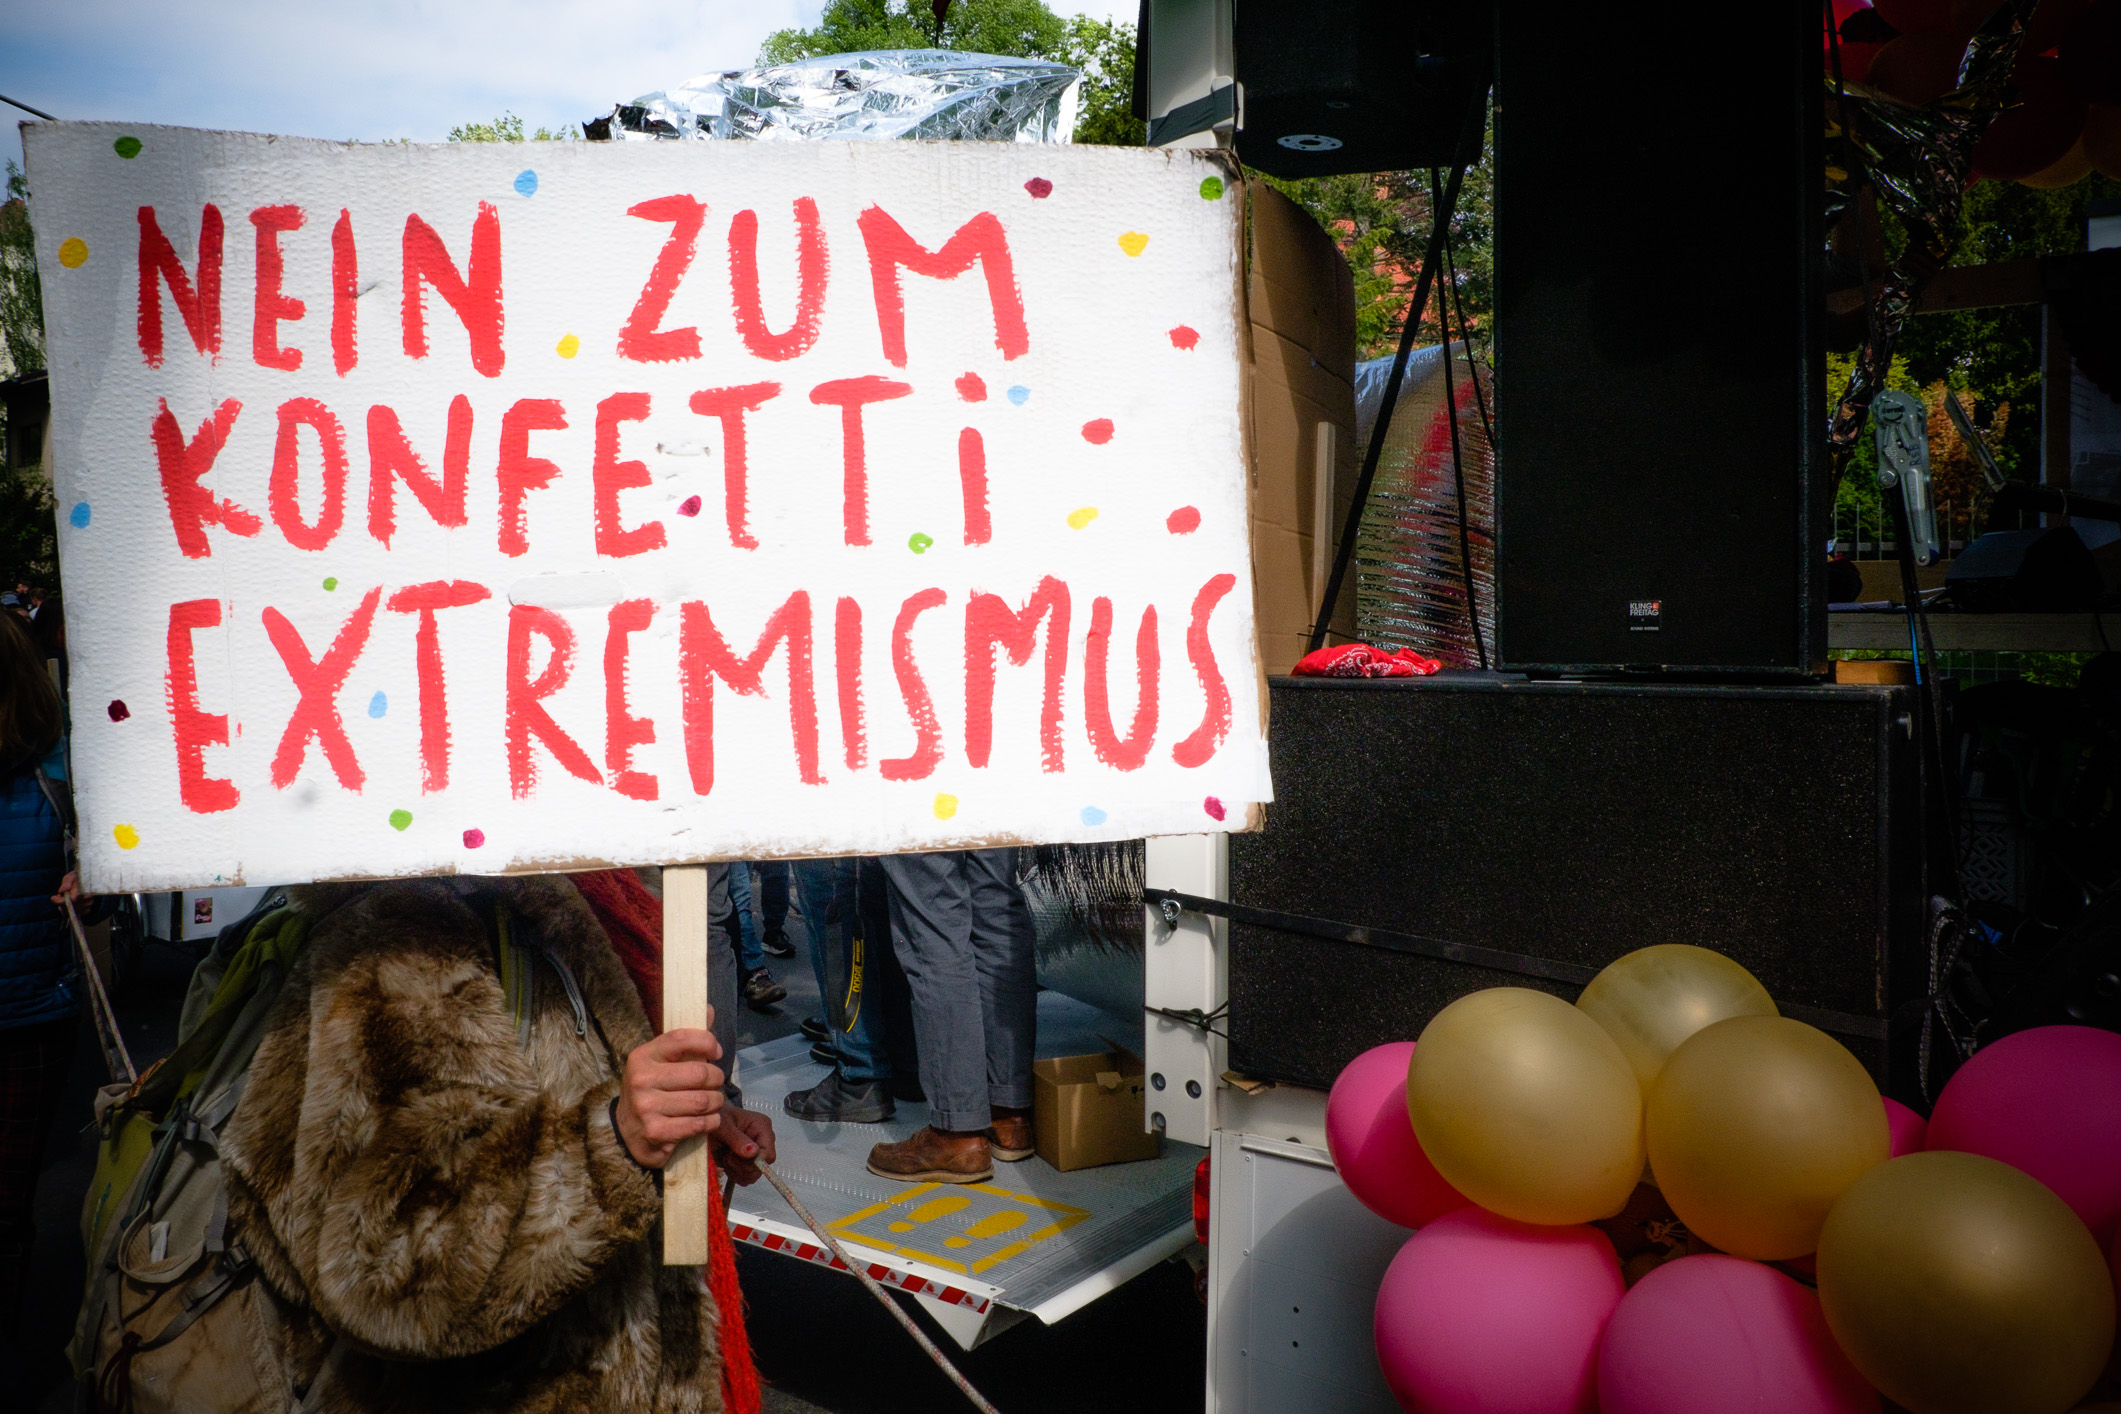 NEIN ZUM
KONFETTi
EXTREMISMUS
KLING
FREITAG